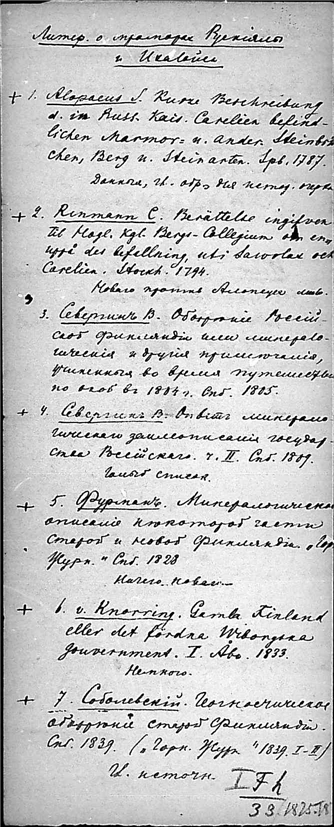 Литер. о мраморах Рускіялы
и Ихалайс
+ 1. Alopaeus S. Kurze Beschreibung
d. im Russ. Kais. Carelien befind-
lichen Marmor- u. ander. Steinbrü-
chen, Berg u. Steinarten. Spb. 1787.
Данныя, И. обр. для
+ 2. Rinmann C. Berättelse ingifven
til Högl. Kgl. Bergs-Collegium om en
uppå des befallning, uti Savolax och
Carelien. Stockh. 1794.
Новаго противъ Алопеуса
3. Севергинъ В. Обозрѣніе Россій-
ской Финляндіи или минерало-
гическія и другія примѣчанія,
учиненныя во время путешествія
по оной въ 1804 г. Спб. 1805.
+ 4. Севергинъ В. Опытъ минерало-
гическаго землеописанія государ-
ства Россійскаго. ч. II. Спб. 1809.
Голый список.
+ 5. Фурманъ. Минералогическое
описаніе нѣкоторой части
старой и новой Финляндіи. „Горн.
Журн." Спб. 1828
Ничего новаго
+ 6. v. Knorring. Gamla Finland
eller det fordna Wiborgska
gouvernment. I. Åbo. 1833.
Немного.
+ 7. Соболевскій. Геогностическое
обозрѣніе старой Финляндіи.
Спб. 1839. („Горн. Журн" 1839. I-II)
И. источн.
I Fh
33/1825-18